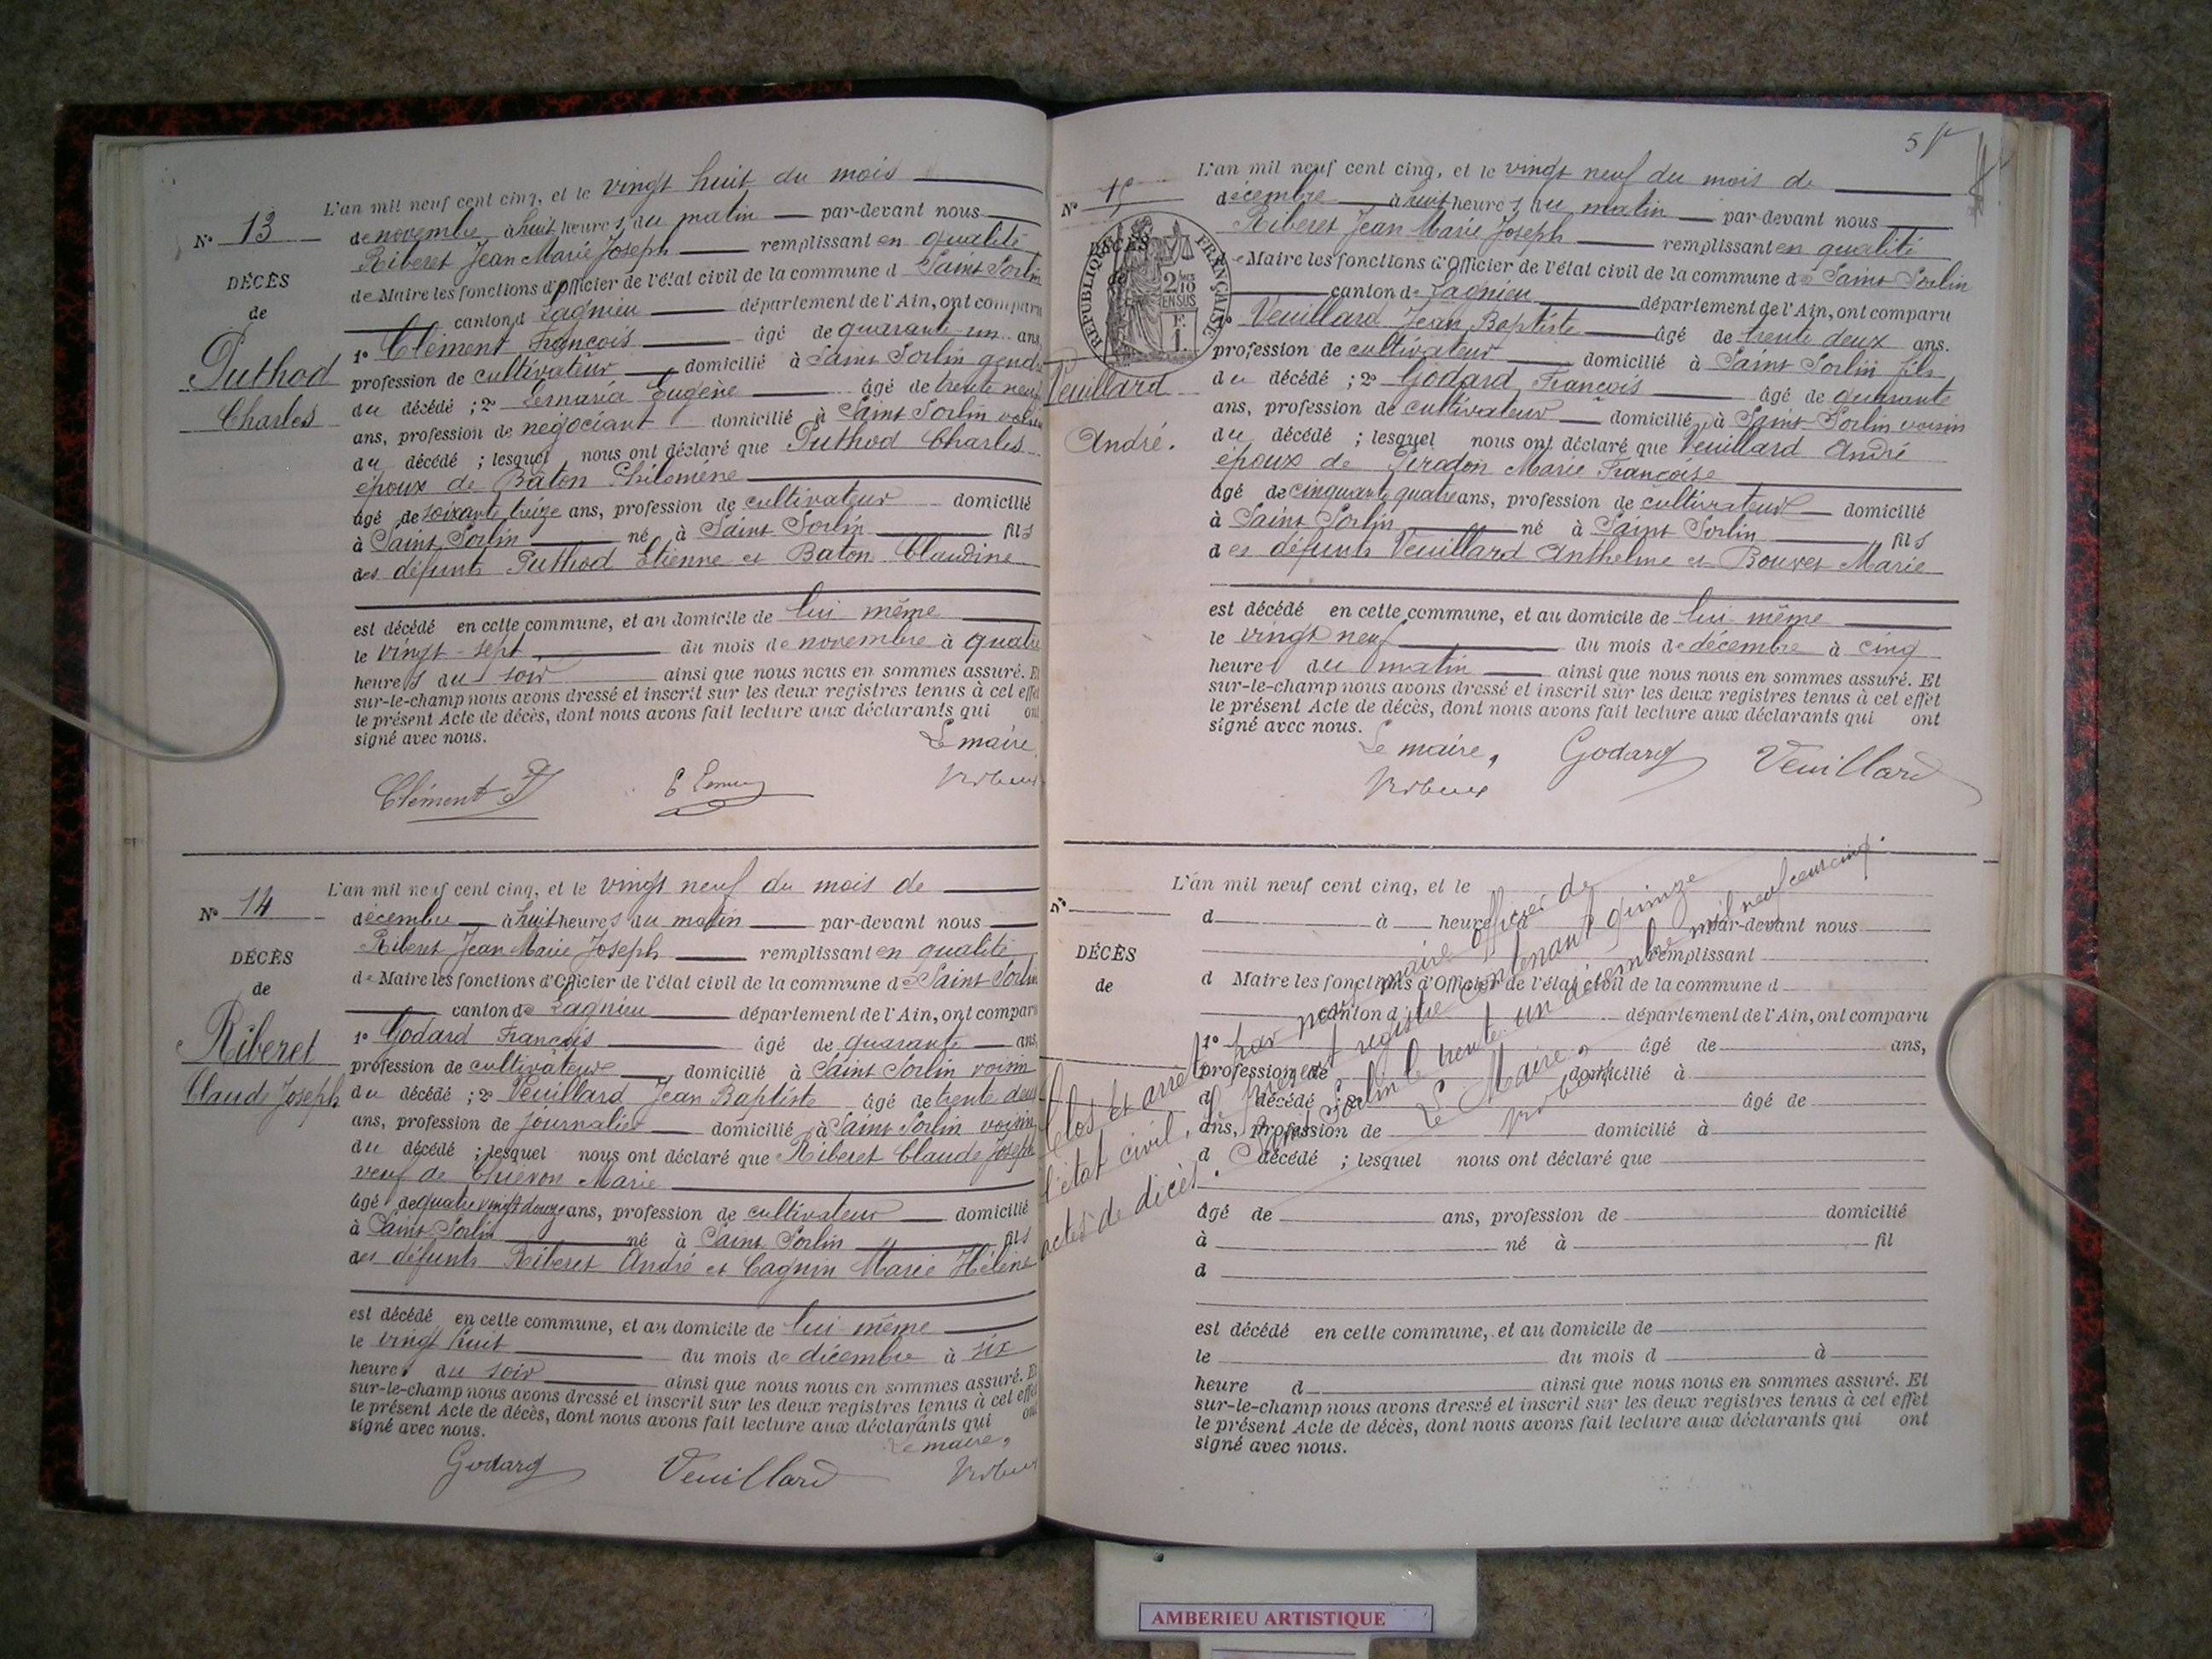 L'an mil neuf cent cinq, et le vingt huit du mois
N° 13
de novembre à huit heures du matin par-devant nous
Riberet Jean Marie Joseph remplissant en qualité
DÉCÈS
de Maire les fonctions d'Officier de l'état civil de la commune d Saint Sorlin
de
canton d Lagnieu département de l'Ain, ont comparu
1° Clément François âgé de quarante un ans,
Puthod
profession de cultivateur domicilié à Saint Sorlin gendre
Charles
du décédé ; 2° Lemaria Eugène âgé de trente neuf
ans, profession de négociant domicilié à Saint Sorlin voisin
du décédé ; lesquel nous ont déclaré que Puthod Charles
époux de Bâton Philomène
âgé de soixante treize ans, profession de cultivateur domicilié
à Saint Sorlin né à Saint Sorlin fils
des défunts Puthod Etienne et Baton Claudine
est décédé en cette commune, et au domicile de lui même
le vingt-sept du mois de novembre à quatre
heures du soir ainsi que nous nous en sommes assuré. Et
sur-le-champ nous avons dressé et inscrit sur les deux registres tenus à cet effet
le présent Acte de décès, dont nous avons fait lecture aux déclarants qui ont
signé avec nous.
Le maire
Clément F
L'an mil neuf cent cinq, et le vingt neuf du mois de
N° 14
décembre à huit heures du matin par-devant nous
Riberet Jean Marie Joseph remplissant en qualité
DÉCÈS
de Maire les fonctions d'Officier de l'état civil de la commune de Saint Sorlin
de
canton de Lagnieu département de l'Ain, ont comparu
1° Godard François âgé de quarante ans,
Riberet
profession de cultivateur domicilié à Saint Sorlin voisin
Claude Joseph
du décédé ; 2° Veuillard Jean Baptiste âgé de trente deux
ans, profession de journalier domicilié à Saint Sorlin voisin
du décédé ; lesquel nous ont déclaré que Riberet Claude Joseph
veuf de Chievon Marie
âgé de quatre vingt douze ans, profession de cultivateur domicilié
à Saint Sorlin né à Saint Sorlin fils
des défunts Riberet André et Cagnin Marie Hélène
est décédé en cette commune, et au domicile de lui même
le vingt huit du mois de décembre à six
heures du soir ainsi que nous nous en sommes assuré. Et
sur-le-champ nous avons dressé et inscrit sur les deux registres tenus à cet effet
le présent Acte de décès, dont nous avons fait lecture aux déclarants qui ont
signé avec nous.
Le maire,
Godard Veuillard
5
L'an mil neuf cent cinq, et le vingt neuf du mois de
N° 15
décembre à huit heures du matin par-devant nous
Riberet Jean Marie Joseph remplissant en qualité
DÉCÈS
de
RÉPUBLIQUE FRANÇAISE
2/10 EN SUS
F.
1.
de Maire les fonctions d'Officier de l'état civil de la commune de Saint Sorlin
canton de Lagnieu département de l'Ain, ont comparu
1° Veuillard Jean Baptiste âgé de trente deux ans.
profession de cultivateur domicilié à Saint Sorlin fils
Veuillard
du décédé ; 2° Godard François âgé de quarante
ans, profession de cultivateur domicilié à Saint Sorlin voisin
André.
du décédé ; lesquel nous ont déclaré que Veuillard André
époux de Giradon Marie Françoise
âgé de cinquante quatre ans, profession de cultivateur domicilié
à Saint Sorlin né à Saint Sorlin fils
des défunts Veuillard Anthelme et Bouvet Marie
est décédé en cette commune, et au domicile de lui même
le vingt neuf du mois de décembre à cinq
heures du matin ainsi que nous nous en sommes assuré. Et
sur-le-champ nous avons dressé et inscrit sur les deux registres tenus à cet effet
le présent Acte de décès, dont nous avons fait lecture aux déclarants qui ont
signé avec nous.
Le maire, Godard Veuillard
L'an mil neuf cent cinq, et le
N°
d à heure d par-devant nous
remplissant
DÉCÈS
d Maire les fonctions d'Officier de l'état civil de la commune d
de
canton d département de l'Ain, ont comparu
1° âgé de ans,
profession de domicilié à
d décédé ; 2° âgé de
ans, profession de domicilié à
d décédé ; lesquel nous ont déclaré que
âgé de ans, profession de domicilié
à né à fil
d
est décédé en cette commune, et au domicile de
le du mois d à
heure d ainsi que nous nous en sommes assuré. Et
sur-le-champ nous avons dressé et inscrit sur les deux registres tenus à cet effet
le présent Acte de décès, dont nous avons fait lecture aux déclarants qui ont
signé avec nous.
Clos et arrêté par nous maire officier de
l'état civil, le présent registre contenant quinze
actes de décès. Saint Sorlin le trente un décembre mil neuf cent cinq.
Le Maire,
AMBERIEU ARTISTIQUE